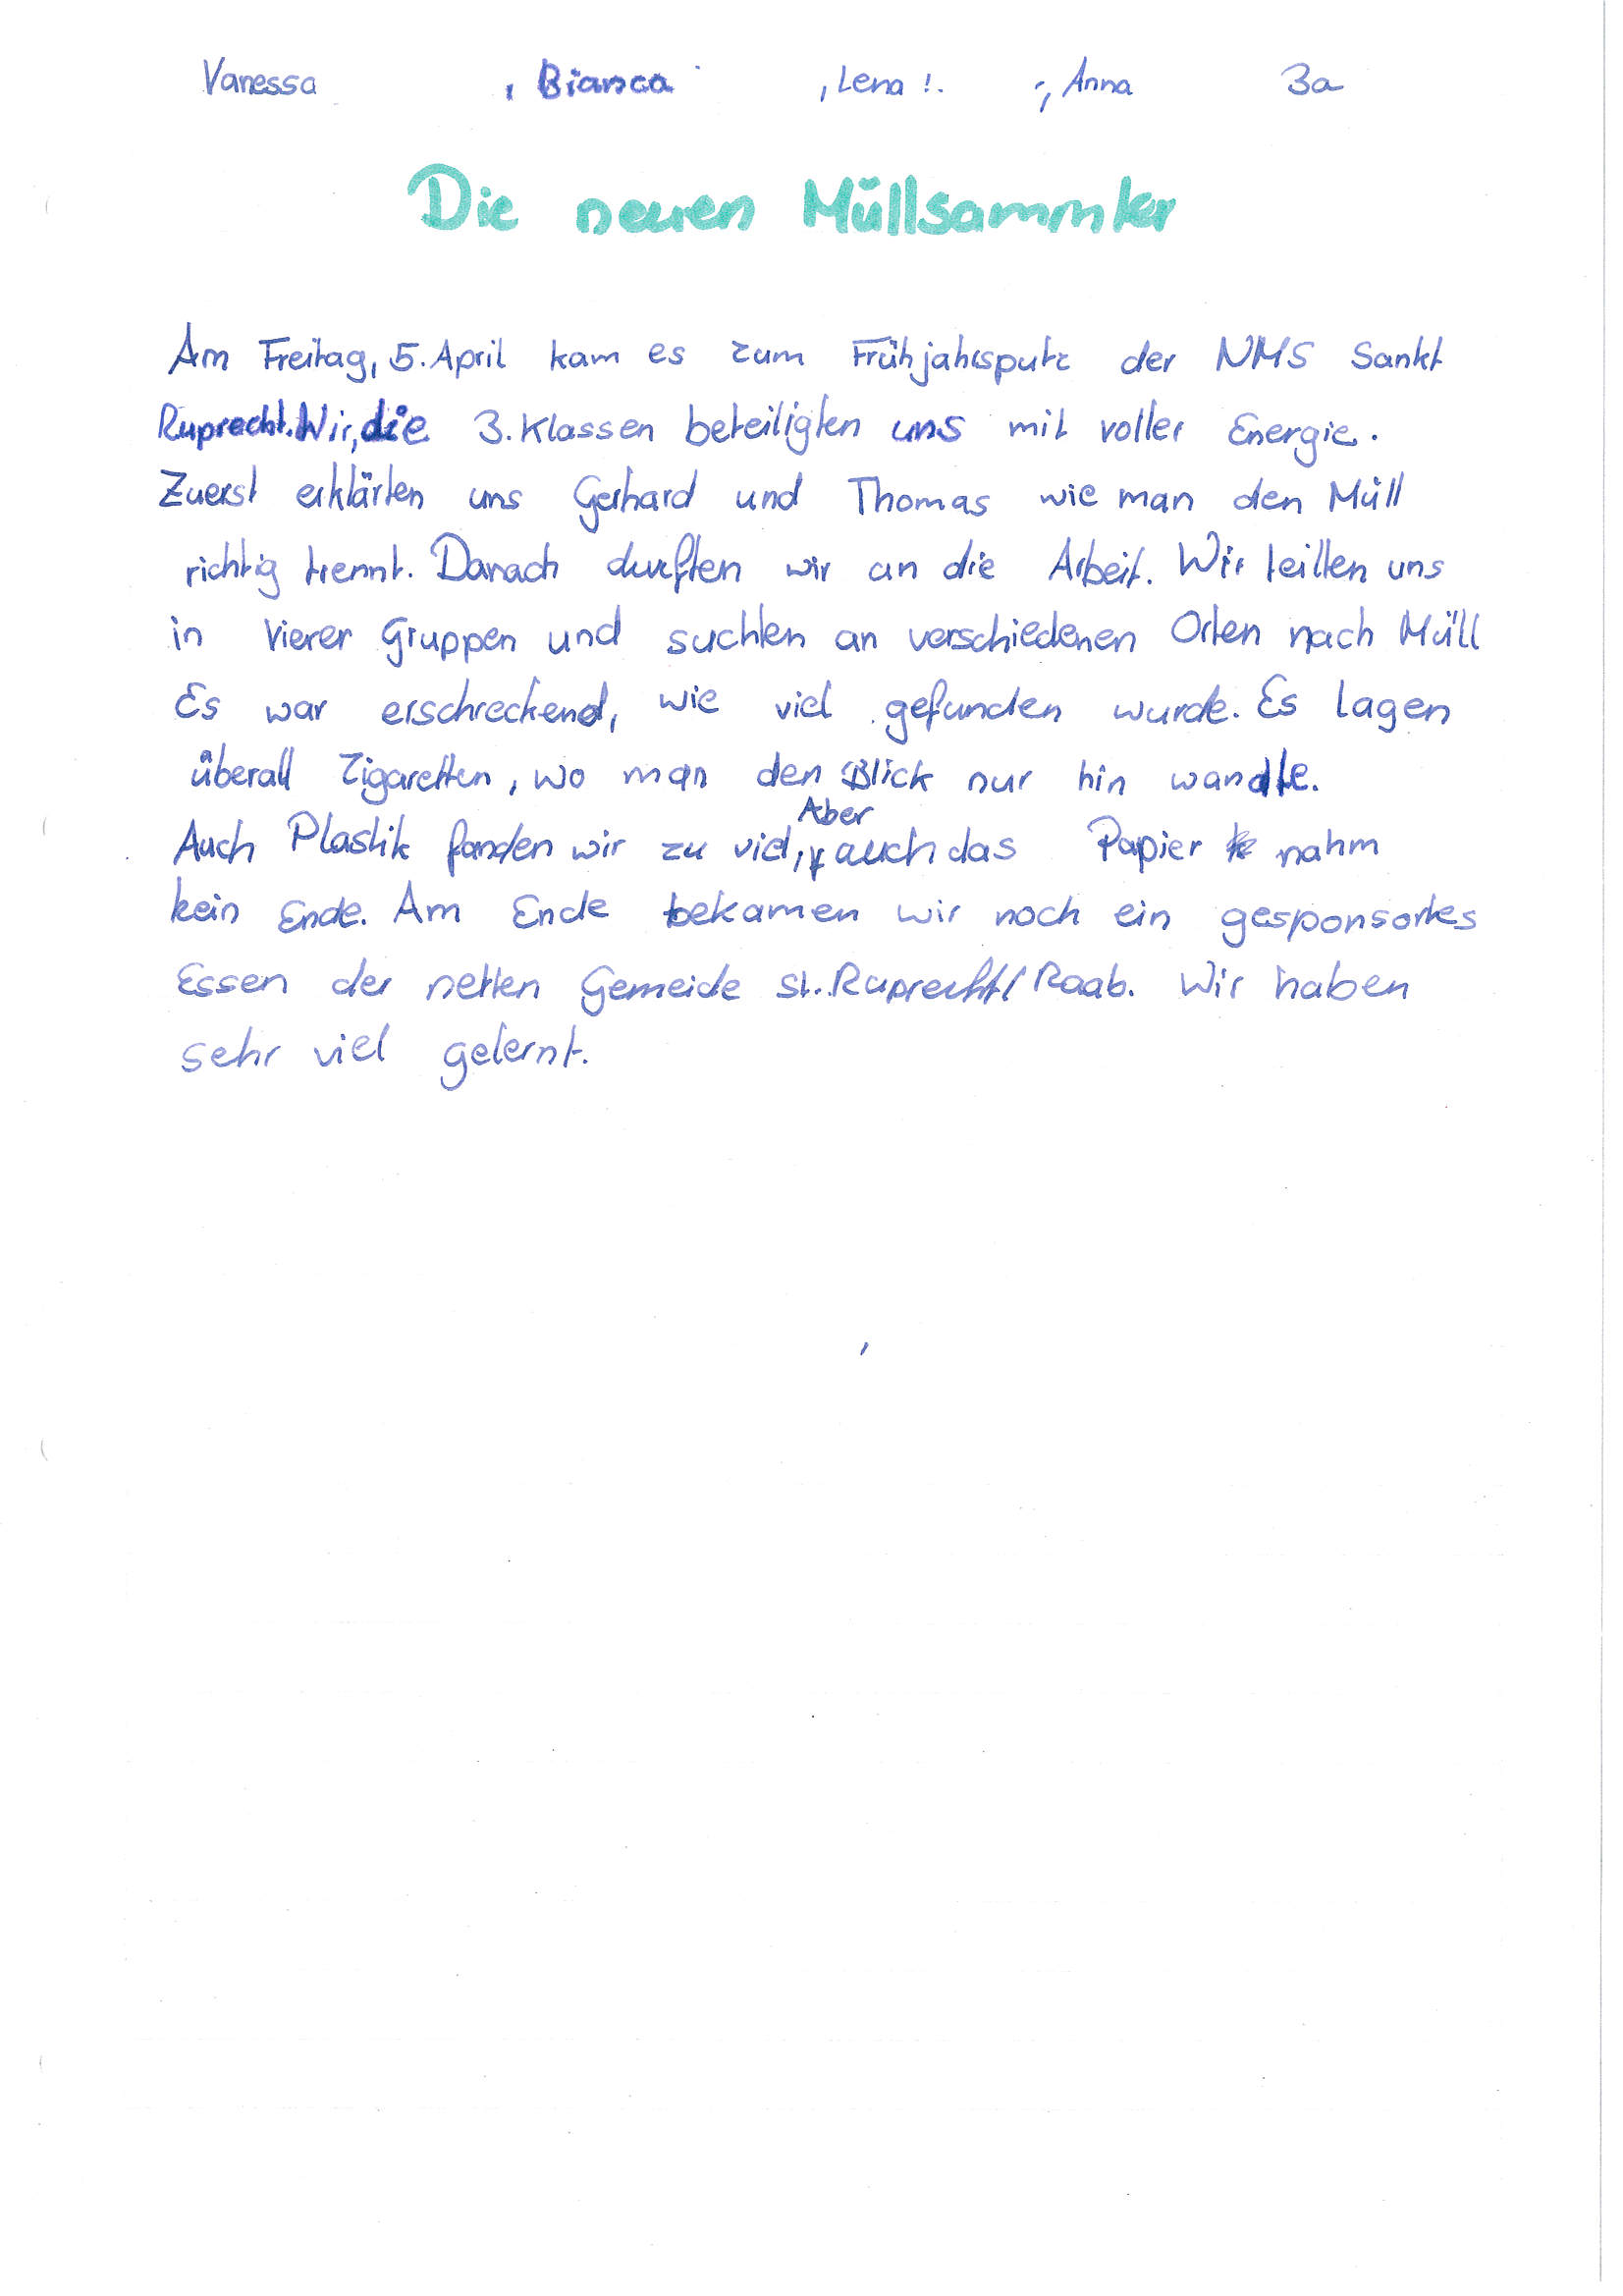 Vanessa , Bianca , Lena !. -, Anna 3a
Die neuen Müllsammler
Am Freitag, 5. April kam es zum Frühjahrsputz der NMS Sankt
Ruprecht. Wir, die 3. Klassen beteiligten uns mit voller Energie.
Zuerst erklärten uns Gerhard und Thomas wie man den Müll
richtig trennt. Danach durften wir an die Arbeit. Wir teilten uns
in Vierer Gruppen und suchten an verschiedenen Orten nach Müll
Es war erschreckend, wie viel gefunden wurde. Es lagen
überall Zigaretten, wo man den Blick nur hin wandte.
Aber
Auch Plastik fanden wir zu viel, auch das Papier nahm
kein Ende. Am Ende bekamen wir noch ein gesponsortes
Essen der netten Gemeide St. Ruprecht/Raab. Wir haben
sehr viel gelernt.